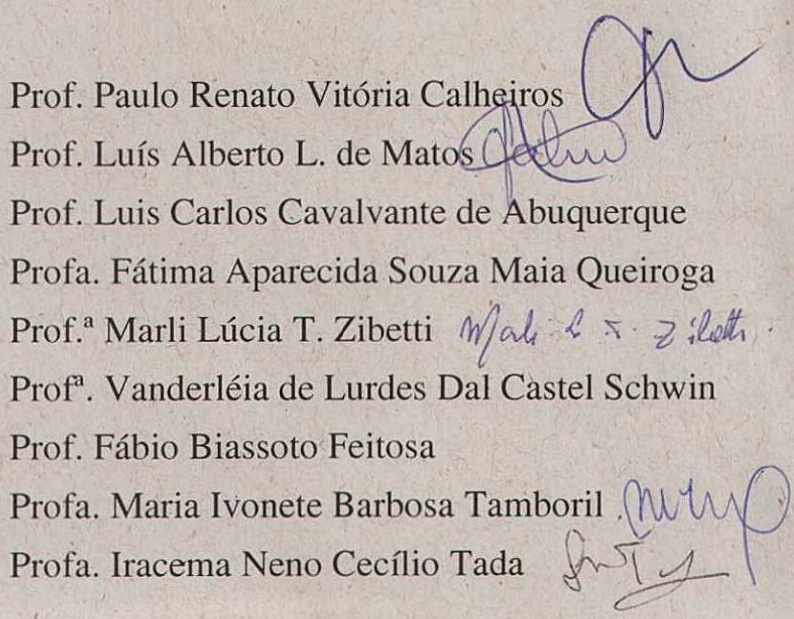 Prof. Paulo Renato Vitória Calheiros
Prof. Luís Alberto L. de Matos
Prof. Luis Carlos Cavalvante de Abuquerque
Profa. Fátima Aparecida Souza Maia Queiroga
Prof.ª Marli Lúcia T. Zibetti Marli L T. Zibetti
Profª. Vanderléia de Lurdes Dal Castel Schwin
Prof. Fábio Biassoto Feitosa
Profa. Maria Ivonete Barbosa Tamboril
Profa. Iracema Neno Cecílio Tada